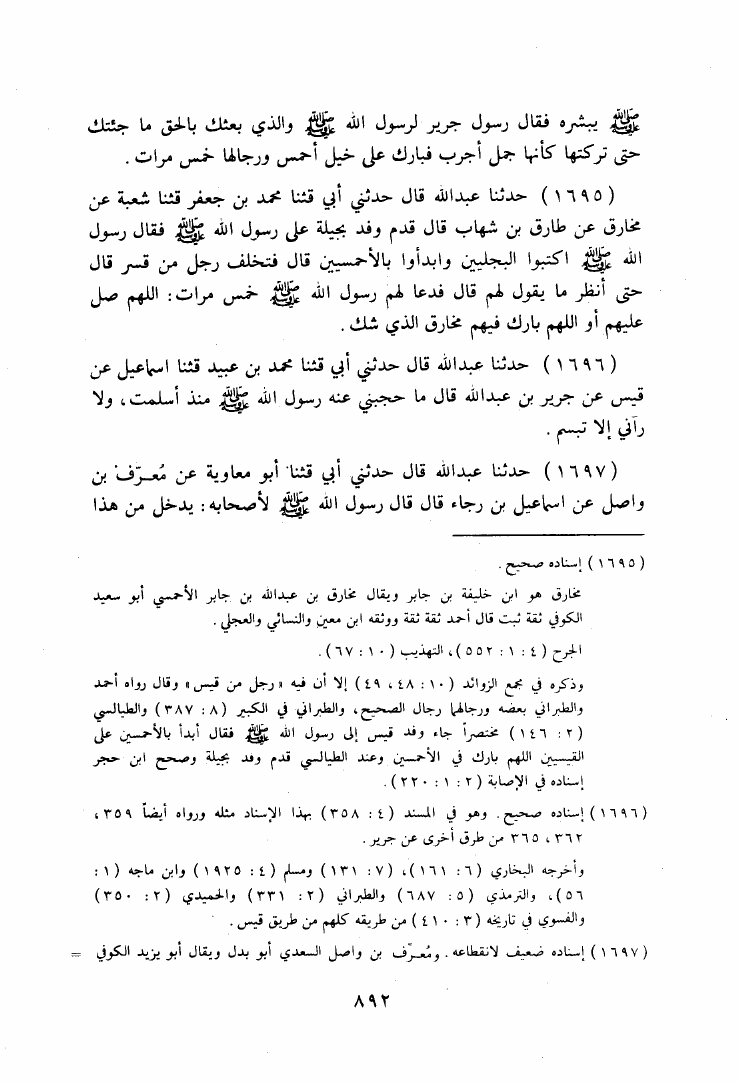 ﷺ يبشره فقال رسول جرير لرسول الله ﷺ والذي بعثك بالحق ما جئتك
حتى تركتها كأنها جمل أجرب فبارك على خيل أحمس ورجالها خمس مرات .
(١٦٩٥) حدثنا عبدالله قال حدثني أبي قثنا محمد بن جعفر قثنا شعبة عن
مخارق عن طارق بن شهاب قال قدم وفد بجيلة على رسول الله ﷺ فقال رسول
الله ﷺ اكتبوا البجليين وابدأوا بالأحمسيين قال فتخلف رجل من قسر قال
حتى أنظر ما يقول لهم قال فدعا لهم رسول الله ﷺ خمس مرات : اللهم صل
عليهم أو اللهم بارك فيهم مخارق الذي شك .
(١٦٩٦) حدثنا عبدالله قال حدثني أبي قثنا محمد بن عبيد قثنا اسماعيل عن
قيس عن جرير بن عبدالله قال ما حجبني عنه رسول الله ﷺ منذ أسلمت ، ولا
رآني إلا تبسم .
(١٦٩٧) حدثنا عبدالله قال حدثني أبي قثنا أبو معاوية عن مُعـرّف بن
واصل عن اسماعيل بن رجاء قال قال رسول الله ﷺ لأصحابه : يدخل من هذا
(١٦٩٥) إسناده صحيح .
مخارق هو ابن خليفة بن جابر ويقال مخارق بن عبدالله بن جابر الأحمسي أبو سعيد
الكوفي ثقة ثبت قال أحمد ثقة ثقة ووثقه ابن معين والنسائي والعجلي .
الجرح (٤ : ١ : ٥٥٢) ، التهذيب (١٠ : ٦٧) .
وذكره في مجمع الزوائد (١٠ : ٤٨ ، ٤٩) إلا أن فيه « رجل من قيس » وقال رواه أحمد
والطبراني بعضه ورجالهما رجال الصحيح ، والطبراني في الكبير (٨ : ٣٨٧) والطيالسي
(٢ : ١٤٦) مختصراً جاء وفد قيس إلى رسول الله ﷺ فقال أبدأ بالأحمسين على
القيسيين اللهم بارك في الأحمسين وعند الطيالسي قدم وفد بجيلة وصحح ابن حجر
إسناده في الإصابة (٢ : ١ : ٢٢٠) .
(١٦٩٦) إسناده صحيح . وهو في المسند (٤ : ٣٥٨) بهذا الإسناد مثله ورواه أيضاً ٣٥٩ ،
٣٦٢ ، ٣٦٥ من طرق أخرى عن جرير .
وأخرجه البخاري (٦ : ١٦١) ، (٧ : ١٣١) ومسلم (٤ : ١٩٢٥) وابن ماجه (١ :
٥٦) ، والترمذي (٥ : ٦٨٧) والطبراني (٢ : ٣٣١) والحميدي (٢ : ٣٥٠)
والفسوي في تاريخه (٣ : ٤١٠) من طريقه كلهم من طريق قيس .
(١٦٩٧) إسناده ضعيف لانقطاعه . ومُعـرّف بن واصل السعدي أبو بدل ويقال أبو يزيد الكوفي =
٨٩٢